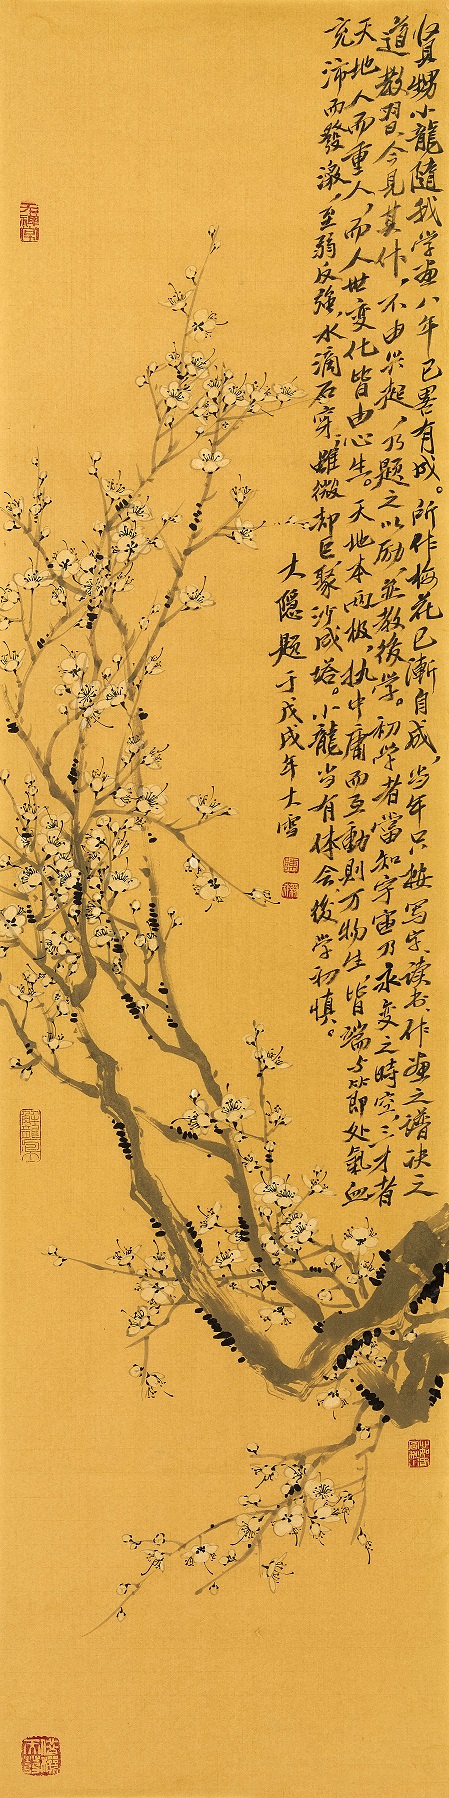 贤甥小龍隨我学画八年已畧有成。所作梅花已漸自成,当年只按写字、读书、作画之谱诀之
道教習、今見其作,不由兴起,乃题之以励,並教後学。初学者當知宇宙乃永变之時空,三才者
天地人而重人,而人世变化皆由心生。天地本两极,执中庸而互動則万物生,皆端与节即处氣血
充沛而發激,至弱反強,水滴石穿,雖微却巨,聚沙成塔。小龍当有体会後学初慎。
大隐题于戊戌年大雪